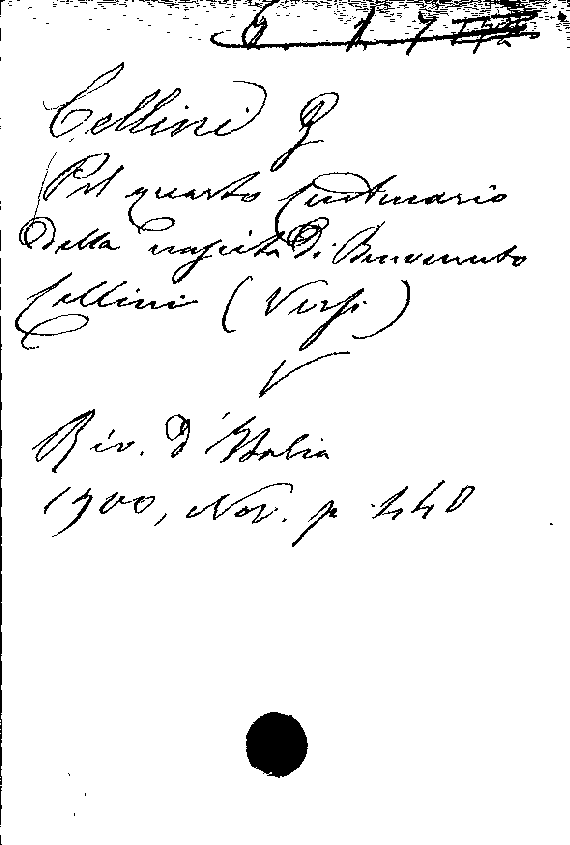 Cellini B
Pel quarto Centenario
della nascita di Benvenuto
Cellini (Versi)
Riv. d'Italia
1900, Nov. p 440